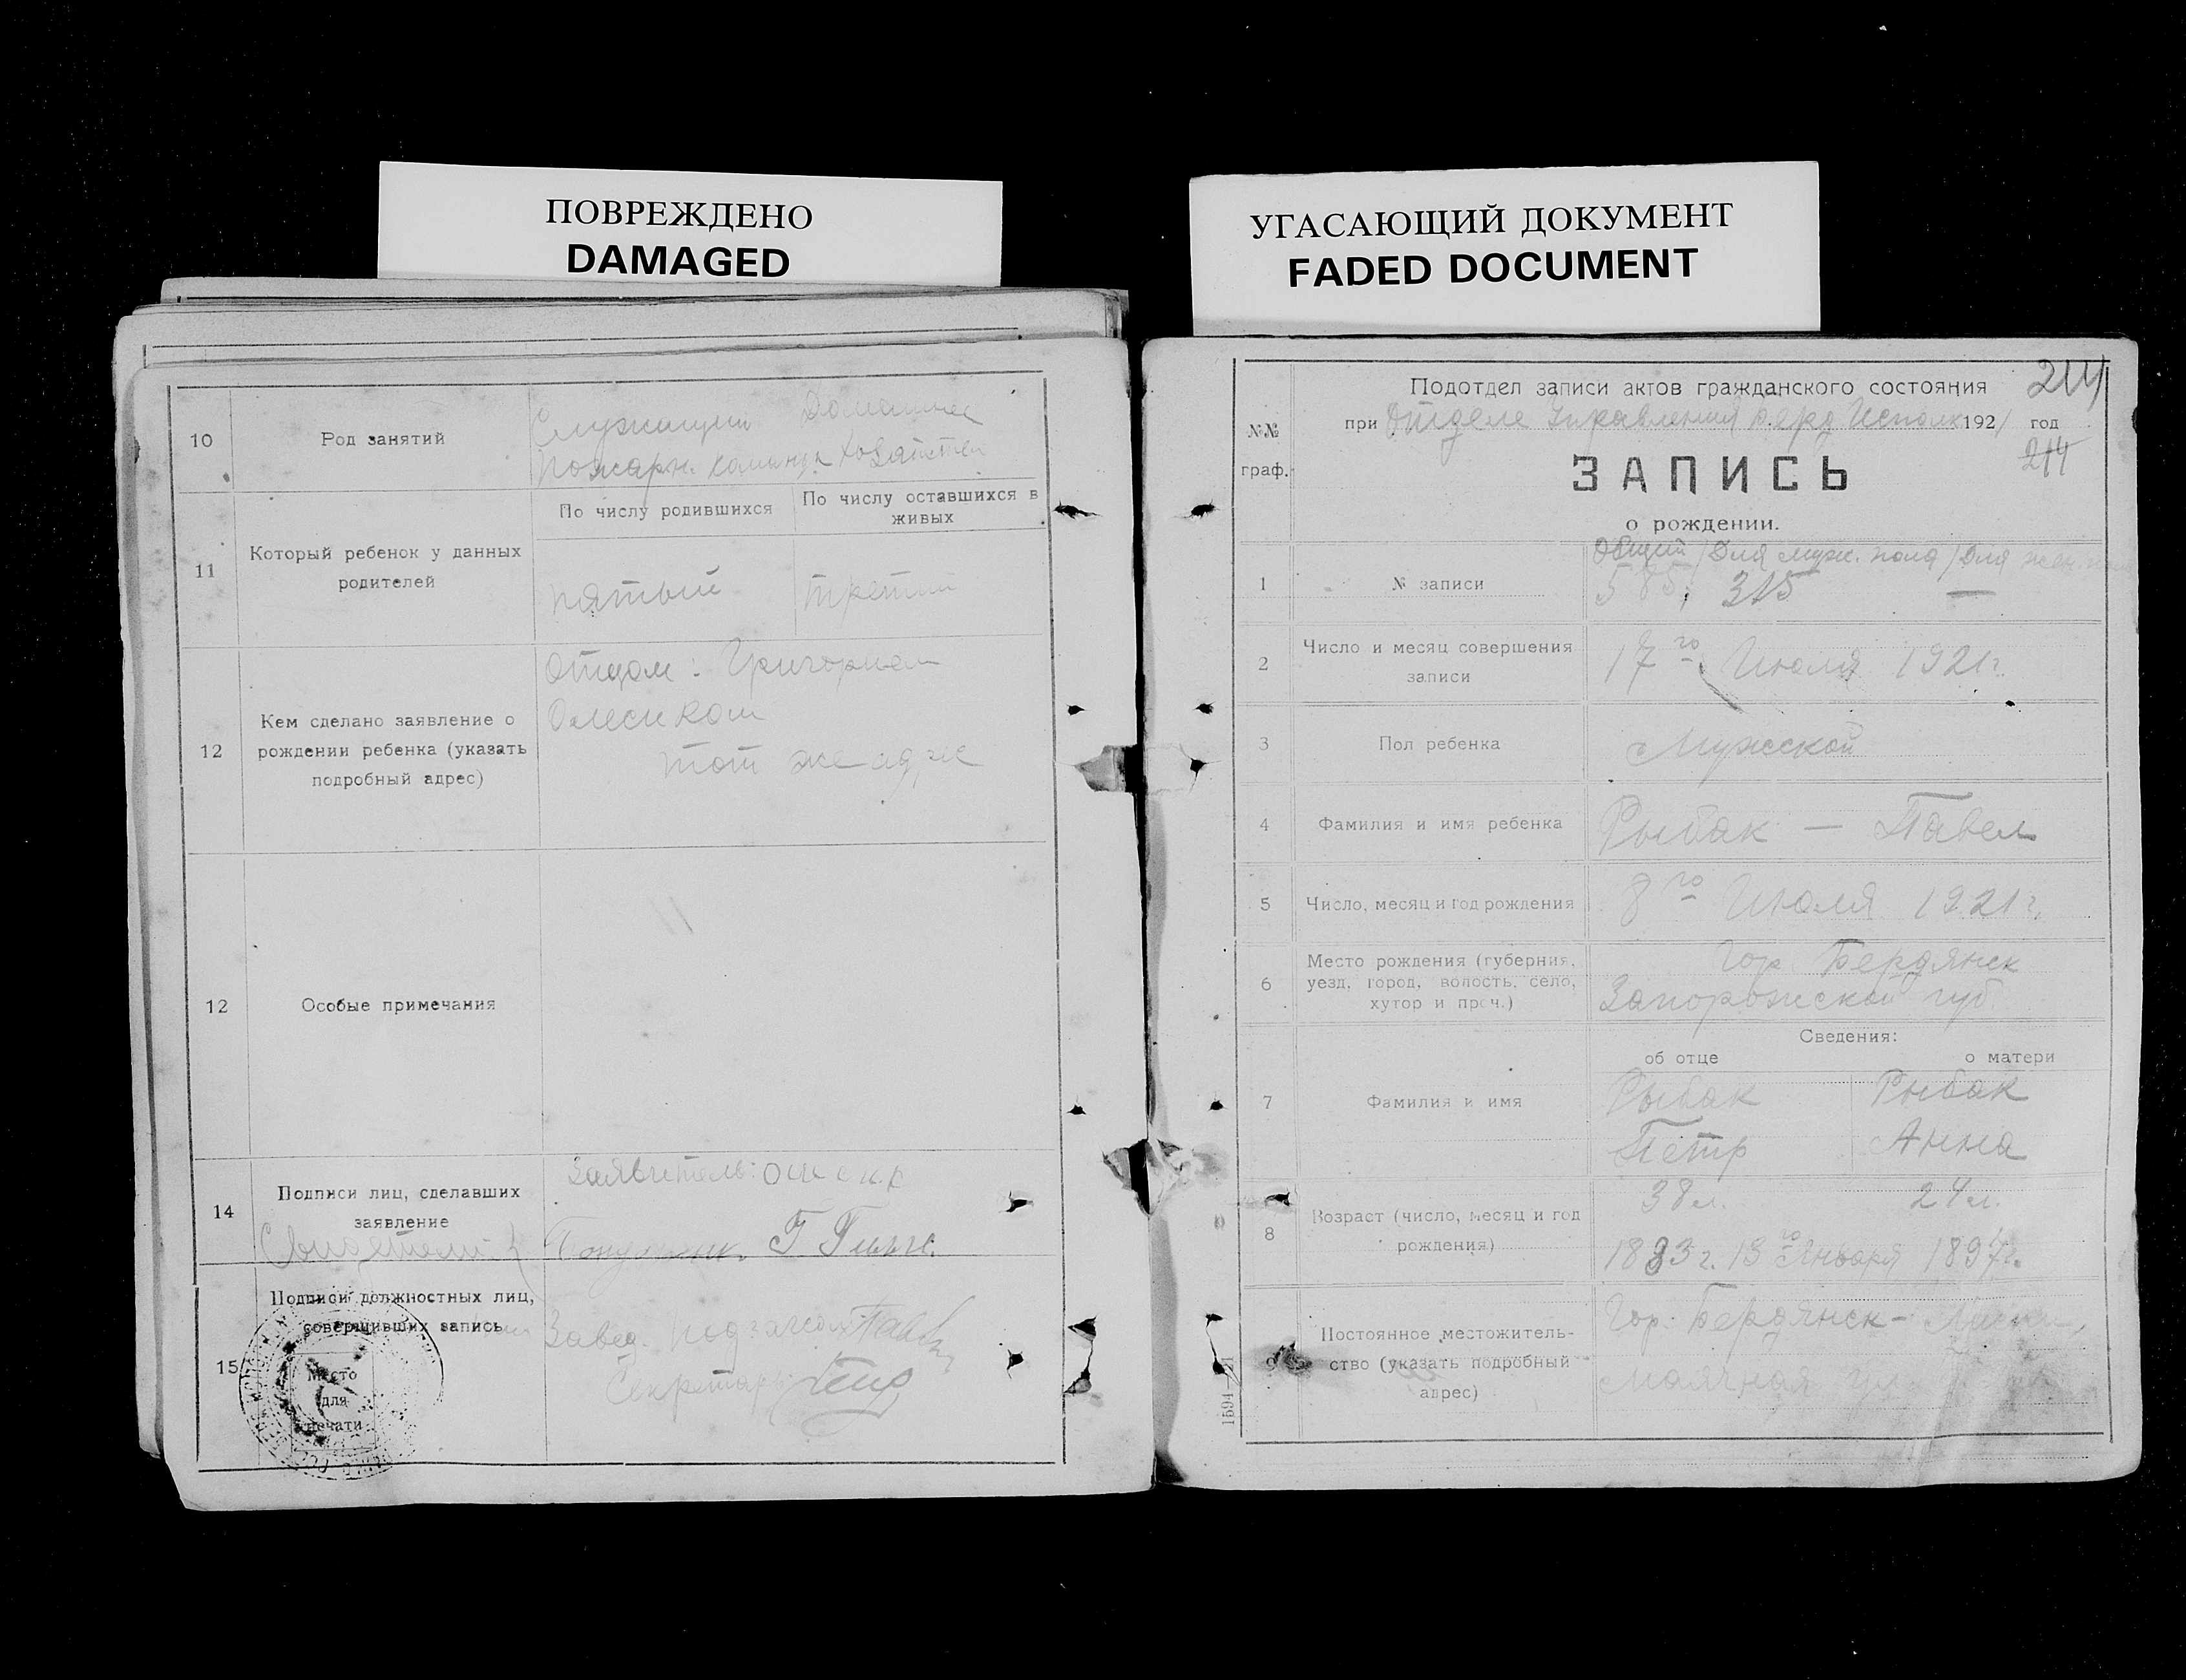 ПОВРЕЖДЕНО
DAMAGED
УГАСАЮЩИЙ ДОКУМЕНТ
FADED DOCUMENT
10
Род занятий
Служащий
пожарн. команды
Домашнее
хозяйство
11
Который ребенок у данных
родителей
По числу родившихся
По числу оставшихся в
живых
пятый
третий
12
Кем сделано заявление о
рождении ребенка (указать
подробный адрес)
Отцом: Григорием
тот же адрес
12
Особые примечания
14
Подписи лиц, сделавших
заявление
Свидетели
Заявитель:
15
Подписи должностных лиц,
совершивших запись
Место
для
печати
Завед.
Секретарь
214
№№
граф.
Подотдел записи актов гражданского состояния
при Отделе Управления Берд Исполк 1921 год
214
ЗАПИСЬ
о рождении.
1
№ записи
Общий / Для муж. пола / Для жен.
585, 315 —
2
Число и месяц совершения
записи
17го Июля 1921г.
3
Пол ребенка
Мужской
4
Фамилия и имя ребенка
Рыбак — Павел
5
Число, месяц и год рождения
8го Июля 1921г.
6
Место рождения (губерния,
уезд, город, волость, село,
хутор и проч.)
Гор. Бердянск
Запорожской губ.
Сведения:
об отце
о матери
7
Фамилия и имя
Рыбак
Петр
Рыбак
Анна
8
Возраст (число, месяц и год
рождения)
38 л.
24 л.
1883 г. 13го Января 1897г.
9
Постоянное местожитель-
ство (указать подробный
адрес)
Гор. Бердянск-
Маячная ул.
1594